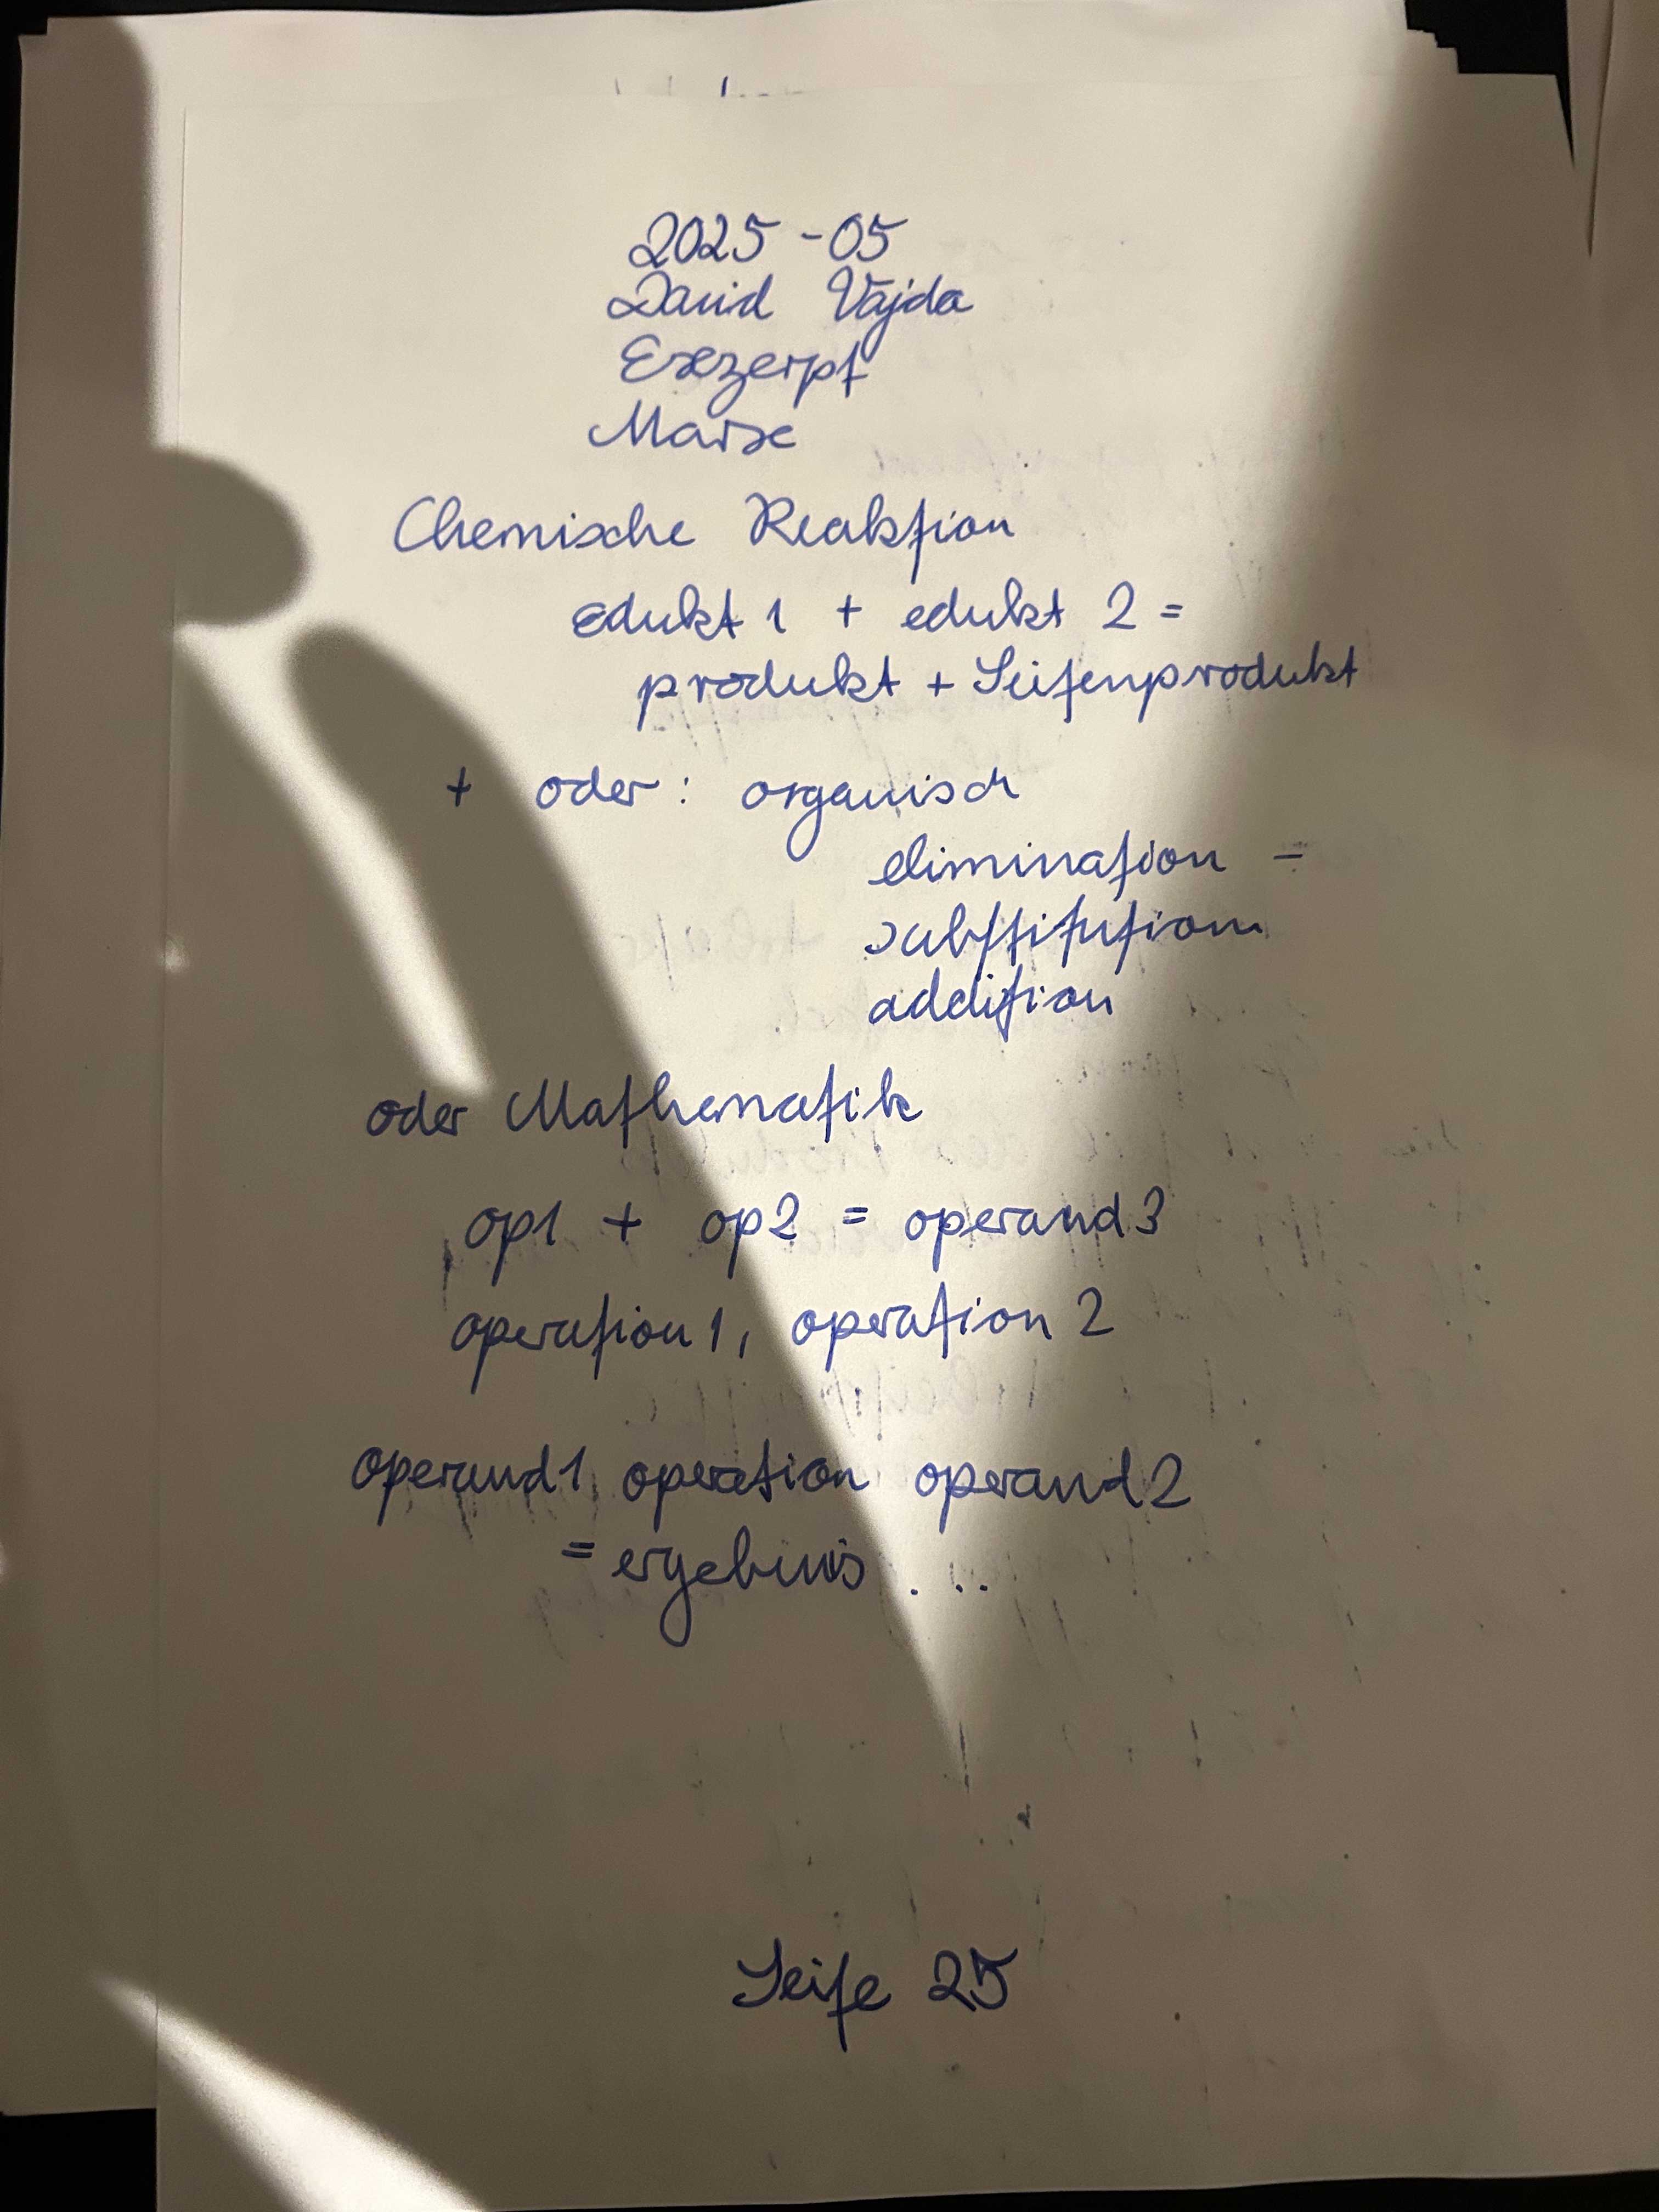 2025-05
David Vajda
Exzerpt
Marx
Chemische Reaktion
edukt 1 + edukt 2 =
produkt + Seitenprodukt
+ oder: organisch
elimination –
substitution
addition
oder Mathematik
op1 + op2 = operand3
operation1, operation 2
operand1 operation operand2
= ergebnis ...
Seite 25